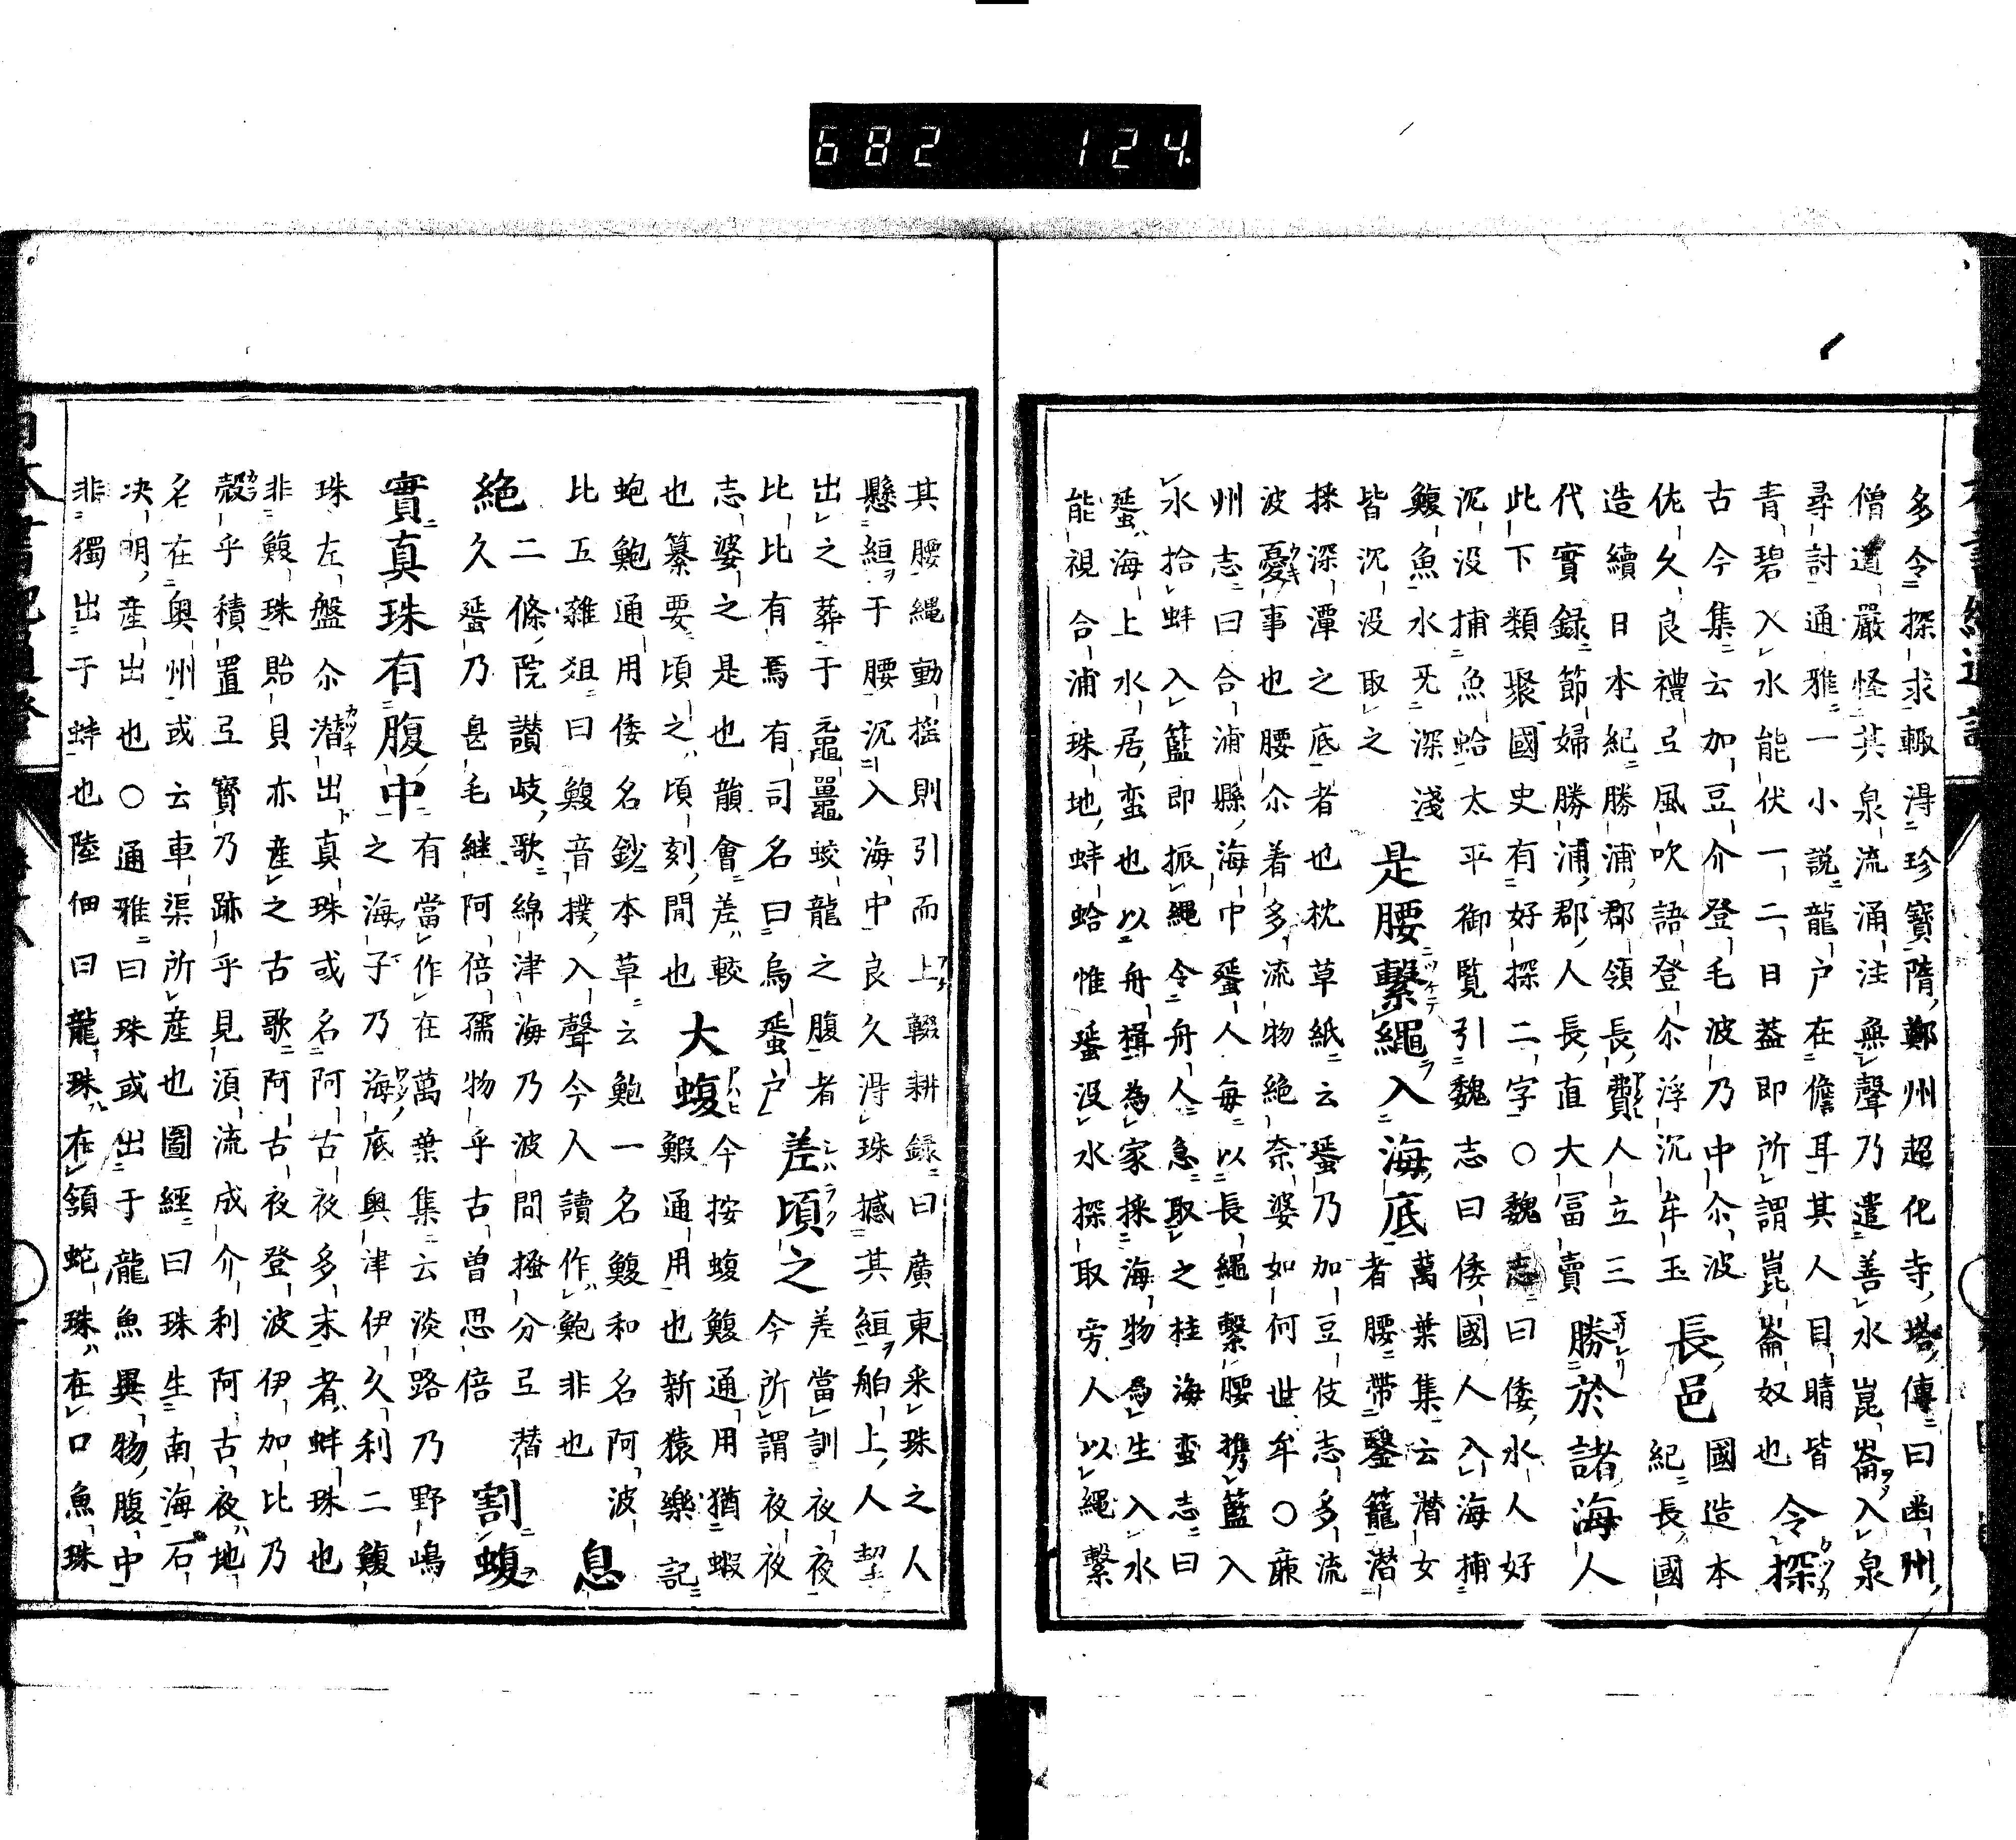 682 124
多令探求輙淂珍寶隋鄭州超化寺塔傳曰幽州
僧道嚴怪其泉流涌注無聲乃遣善水崑崙入泉
尋討通雅一小說龍户在儋耳其人目睛皆
青碧入水能伏一二日葢即所謂崑崙奴也 令探
古今集云加豆介登毛波乃中尒波 國造本
佐久良禮弖風吹語登尒浮沉牟玉 長邑 紀長國
造續日本紀勝浦郡領長費人立三
代實録節婦勝浦郡人長直大冨賣 勝於諸海人
此下類聚國史有好探二字○魏志曰倭水人好
沉没捕魚蛤太平御覧引魏志曰倭國人入海捕
鰒魚水旡深淺 萬葉集云潜女
皆沉没取之 是腰繫繩入海底 者腰帶鑿籠潜
採深潭之底者也枕草紙云蜑乃加豆伎志多流
波憂事也腰尒着多流物絶奈婆如何世牟○廉
州志曰合浦縣海中蜑人每以長繩繫腰携籃入
水拾蚌入籃即振繩令舟人急取之桂海蛮志曰
蜑海上水居蛮也以舟楫為家採海物為生入水
能視合浦珠地蚌蛤惟蜑没水探取旁人以繩繫
其腰繩動揺則引而上輟耕録曰廣東采珠之人
懸絙于腰沉入海中良久淂珠撼其絙舶上人挈
出之葬于黿鼉蛟龍之腹者 差當訓夜夜
比比有焉有司名曰烏蜑户 差頃之 今所謂夜夜
志婆之是也韻會差較 今按蝮鰒通用猶蝦
也纂要頃之頃刻間也 大蝮 鰕通用也新猿樂記
蚫鮑通用倭名鈔本草云鮑一名鰒和名阿波
比五雜爼曰鰒音撲入聲今人讀作鮑非也 息
絶 二條院讃岐歌綿津海乃波問搔分弖潜
久蜑乃甚毛継阿倍孺物乎古曽思倍 割蝮
實真珠有腹中 有當作在萬葉集云淡路乃野嶋
之海子乃海底奥津伊久利二鰒
珠左盤尒潜出真珠或名阿古夜多末者蚌珠也
非鰒珠貽貝亦産之古歌阿古夜登波伊加比乃
殻乎積置弖寳乃跡乎見湏流成介利阿古夜地
名在奥州或云車渠所産也圖經曰珠生南海石
决明産出也○通雅曰珠或出于龍魚異物腹中
非獨出于蚌也陸佃曰龍珠在頷蛇珠在口魚珠